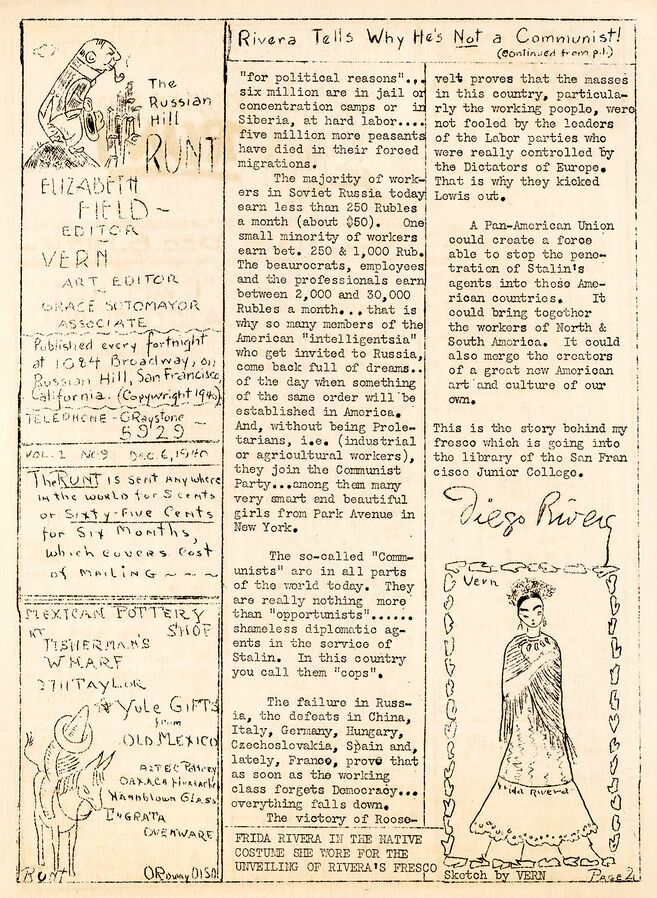 The
Russian
Hill
RUNT
ELIZABETH
FIELD ~
EDITOR
VERN
ART EDITOR
GRACE SOTOMAYOR
ASSOCIATE
Published every fortnight
at 1084 Broadway, on
Russian Hill, San Francisco,
California. (Copywright 1940)
TELEPHONE - GRaystone -
5929
VOL. 1 No. 9 DEC. 6, 1940
The RUNT is sent anywhere
in the world for 5 cents
or Sixty-Five Cents
for Six Months,
which covers cost
of mailing ~ ~ ~
MEXICAN POTTERY
SHOP
AT
FISHERMAN'S
WHARF
2711 TAYLOR
Yule GIFTS
from
OLD MEXICO
AZTEC Pottery
OAXACA Huarache
Handblown Glass
OVENWARE
RUNT
Rivera Tells Why He's Not a Communist!
(continued from p.1.)
"for political reasons"...
six million are in jail or
concentration camps or in
Siberia, at hard labor....
five million more peasants
have died in their forced
migrations.
The majority of work-
ers in Soviet Russia today
earn less than 250 Rubles
a month (about $50). One
small minority of workers
earn bet. 250 & 1,000 Rub.
The beaurocrats, employees
and the professionals earn
between 2,000 and 30,000
Rubles a month... that is
why so many members of the
American "intelligentsia"
who get invited to Russia,
come back full of dreams..
of the day when something
of the same order will be
established in America.
And, without being Prole-
tarians, i.e. (industrial
or agricultural workers),
they join the Communist
Party...among them many
very smart and beautiful
girls from Park Avenue in
New York.
The so-called "Comm-
unists" are in all parts
of the world today. They
are really nothing more
than "opportunists"......
shameless diplomatic ag-
ents in the service of
Stalin. In this country
you call them "cops".
The failure in Russ-
ia, the defeats in China,
Italy, Germany, Hungary,
Czechoslovakia, Spain and,
lately, France, prove that
as soon as the working
class forgets Democracy...
everything falls down.
The victory of Roose-
velt proves that the masses
in this country, particula-
rly the working people, were
not fooled by the leaders
of the Labor parties who
were really controlled by
the Dictators of Europe.
That is why they kicked
Lewis out.
A Pan-American Union
could create a force
able to stop the pene-
tration of Stalin's
agents into those Ame-
rican countries. It
could bring together
the workers of North &
South America. It could
also merge the creators
of a great new American
art and culture of our
own.
This is the story behind my
fresco which is going into
the library of the San Fran
cisco Junior College.
Diego Rivera
Vern
Frida Rivera
FRIDA RIVERA IN THE NATIVE
COSTUME SHE WORE FOR THE
UNVEILING OF RIVERA'S FRESCO
Sketch by VERN
PAGE 2